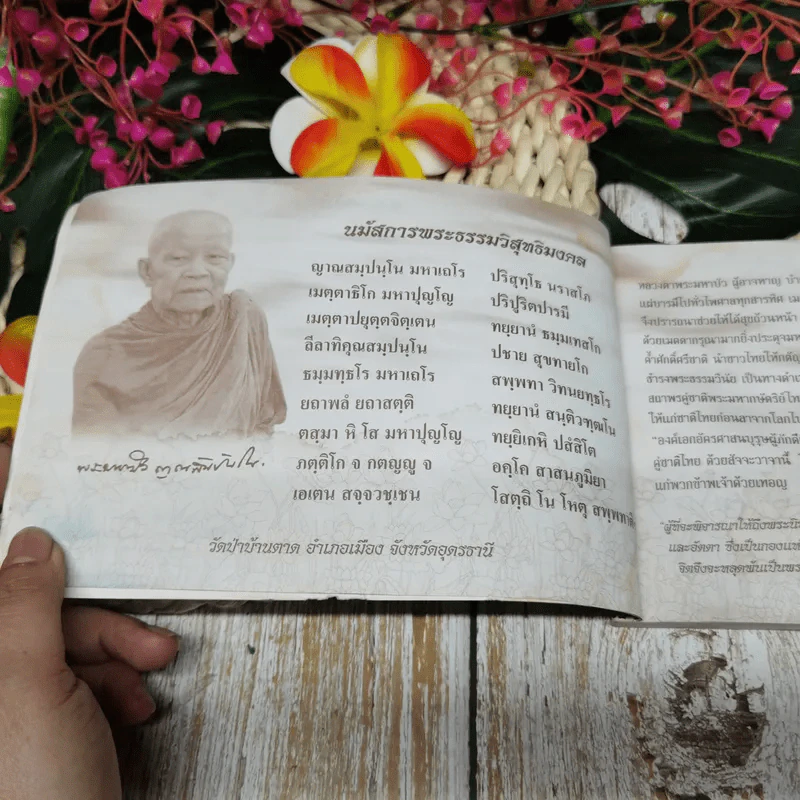 นมัสการพระธรรมวิสุทธิมงคล
ญาณสมฺปนฺโน มหาเถโร ปริสุทฺโธ นราสโภ
เมตฺตาธิโก มหาปุญฺโญ ปริปูริตปารมี
เมตฺตาปยุตฺตจิตฺเตน ทยฺยานํ ธมฺมเทสโก
ลีลาทิคุณสมฺปนฺโน ปชาย สุขทายโก
ธมฺมทฺธโร มหาเถโร สพฺพทา วิทนยทฺธโร
ยถาพลํ ยถาสตฺติ ทยฺยานํ สนฺติวฑฺฒโน
ตสฺมา หิ โส มหาปุญฺโญ ทยฺยิเกหิ ปสํสิโต
ภตฺติโก จ กตญญู จ อคฺโค สาสนภูมิยา
เอเตน สจฺจวชฺเชน โสตฺถิ โน โหตุ สพฺพทา
พระมหาบัว ญาณสัมปันโน.
วัดป่าบ้านตาด อำเภอเมือง จังหวัดอุดรธานี
หลวงตาพระมหาบัว ผู้อาจหาญ
แผ่บารมีไปทั่วไพศาลทุกสารทิศ
จึงปรารถนาช่วยให้ได้สุขถ้วนหน้า
ด้วยเมตตากรุณามากยิ่งประดุจ
ค้ำศักดิ์ศรีชาติ นำชาวไทยให้
ธำรงพระธรรมวินัย เป็นทาง
สถาพรคู่ชาติพระมหากษัตริย์
ให้แก่ชาติไทยก่อนลาจากโลก
"องค์เอกอัครศาสนบุรุษผู้ภักดี
คู่ชาติไทย ด้วยสัจจะวาจานี้
แก่พวกข้าพเจ้าด้วยเทอญ
"ผู้ที่จะพิจารณาให้ถึงพระ
และอัตตา ซึ่งเป็นกองแห่ง
จิตจึงจะหลุดพ้นเป็น